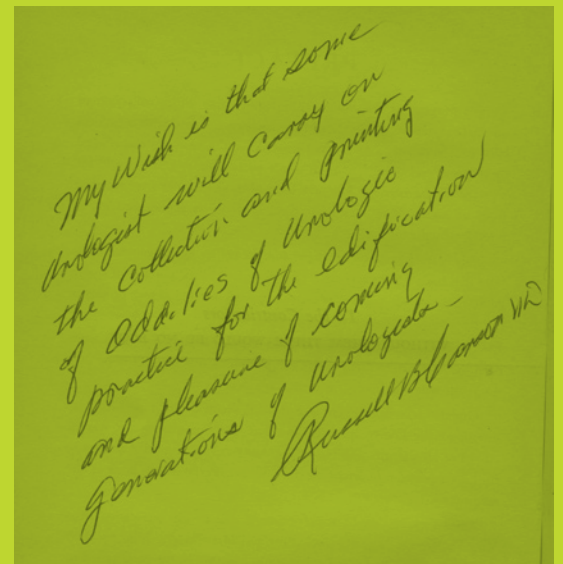 My Wish is that some
urologist will carry on
the collection and printing
of oddities of Urologic
practice for the edification
and pleasure of coming
generations of urologists
Russell B Carson MD